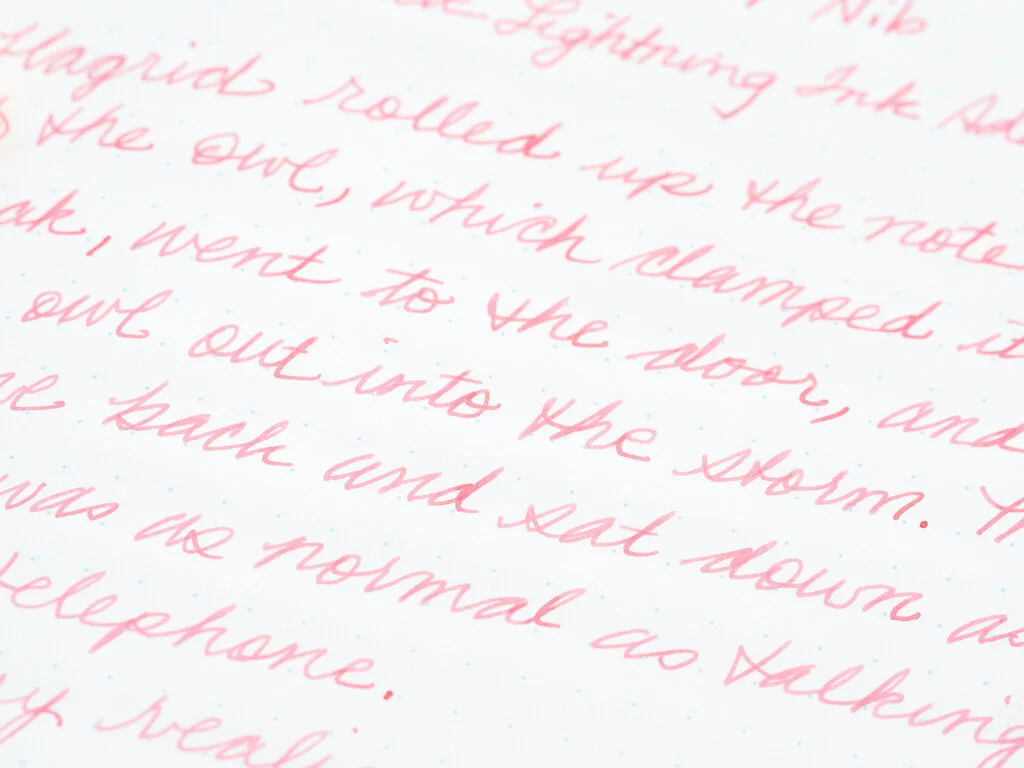 Nib
Lightning Ink
Hagrid rolled up the note
the owl, which clamped it
went to the door, and
owl out into the storm.
back and sat down as
was as normal as talking
telephone.